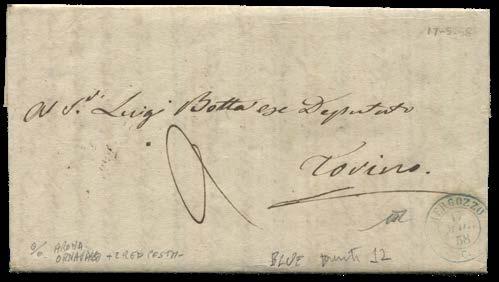 17-5-58
Al S.r Luigi Botta ex Deputato
2
Torino.
MERGOZZO
17
58
ARONA
ORNAVASSO + 2 RED
BLUE punti 12